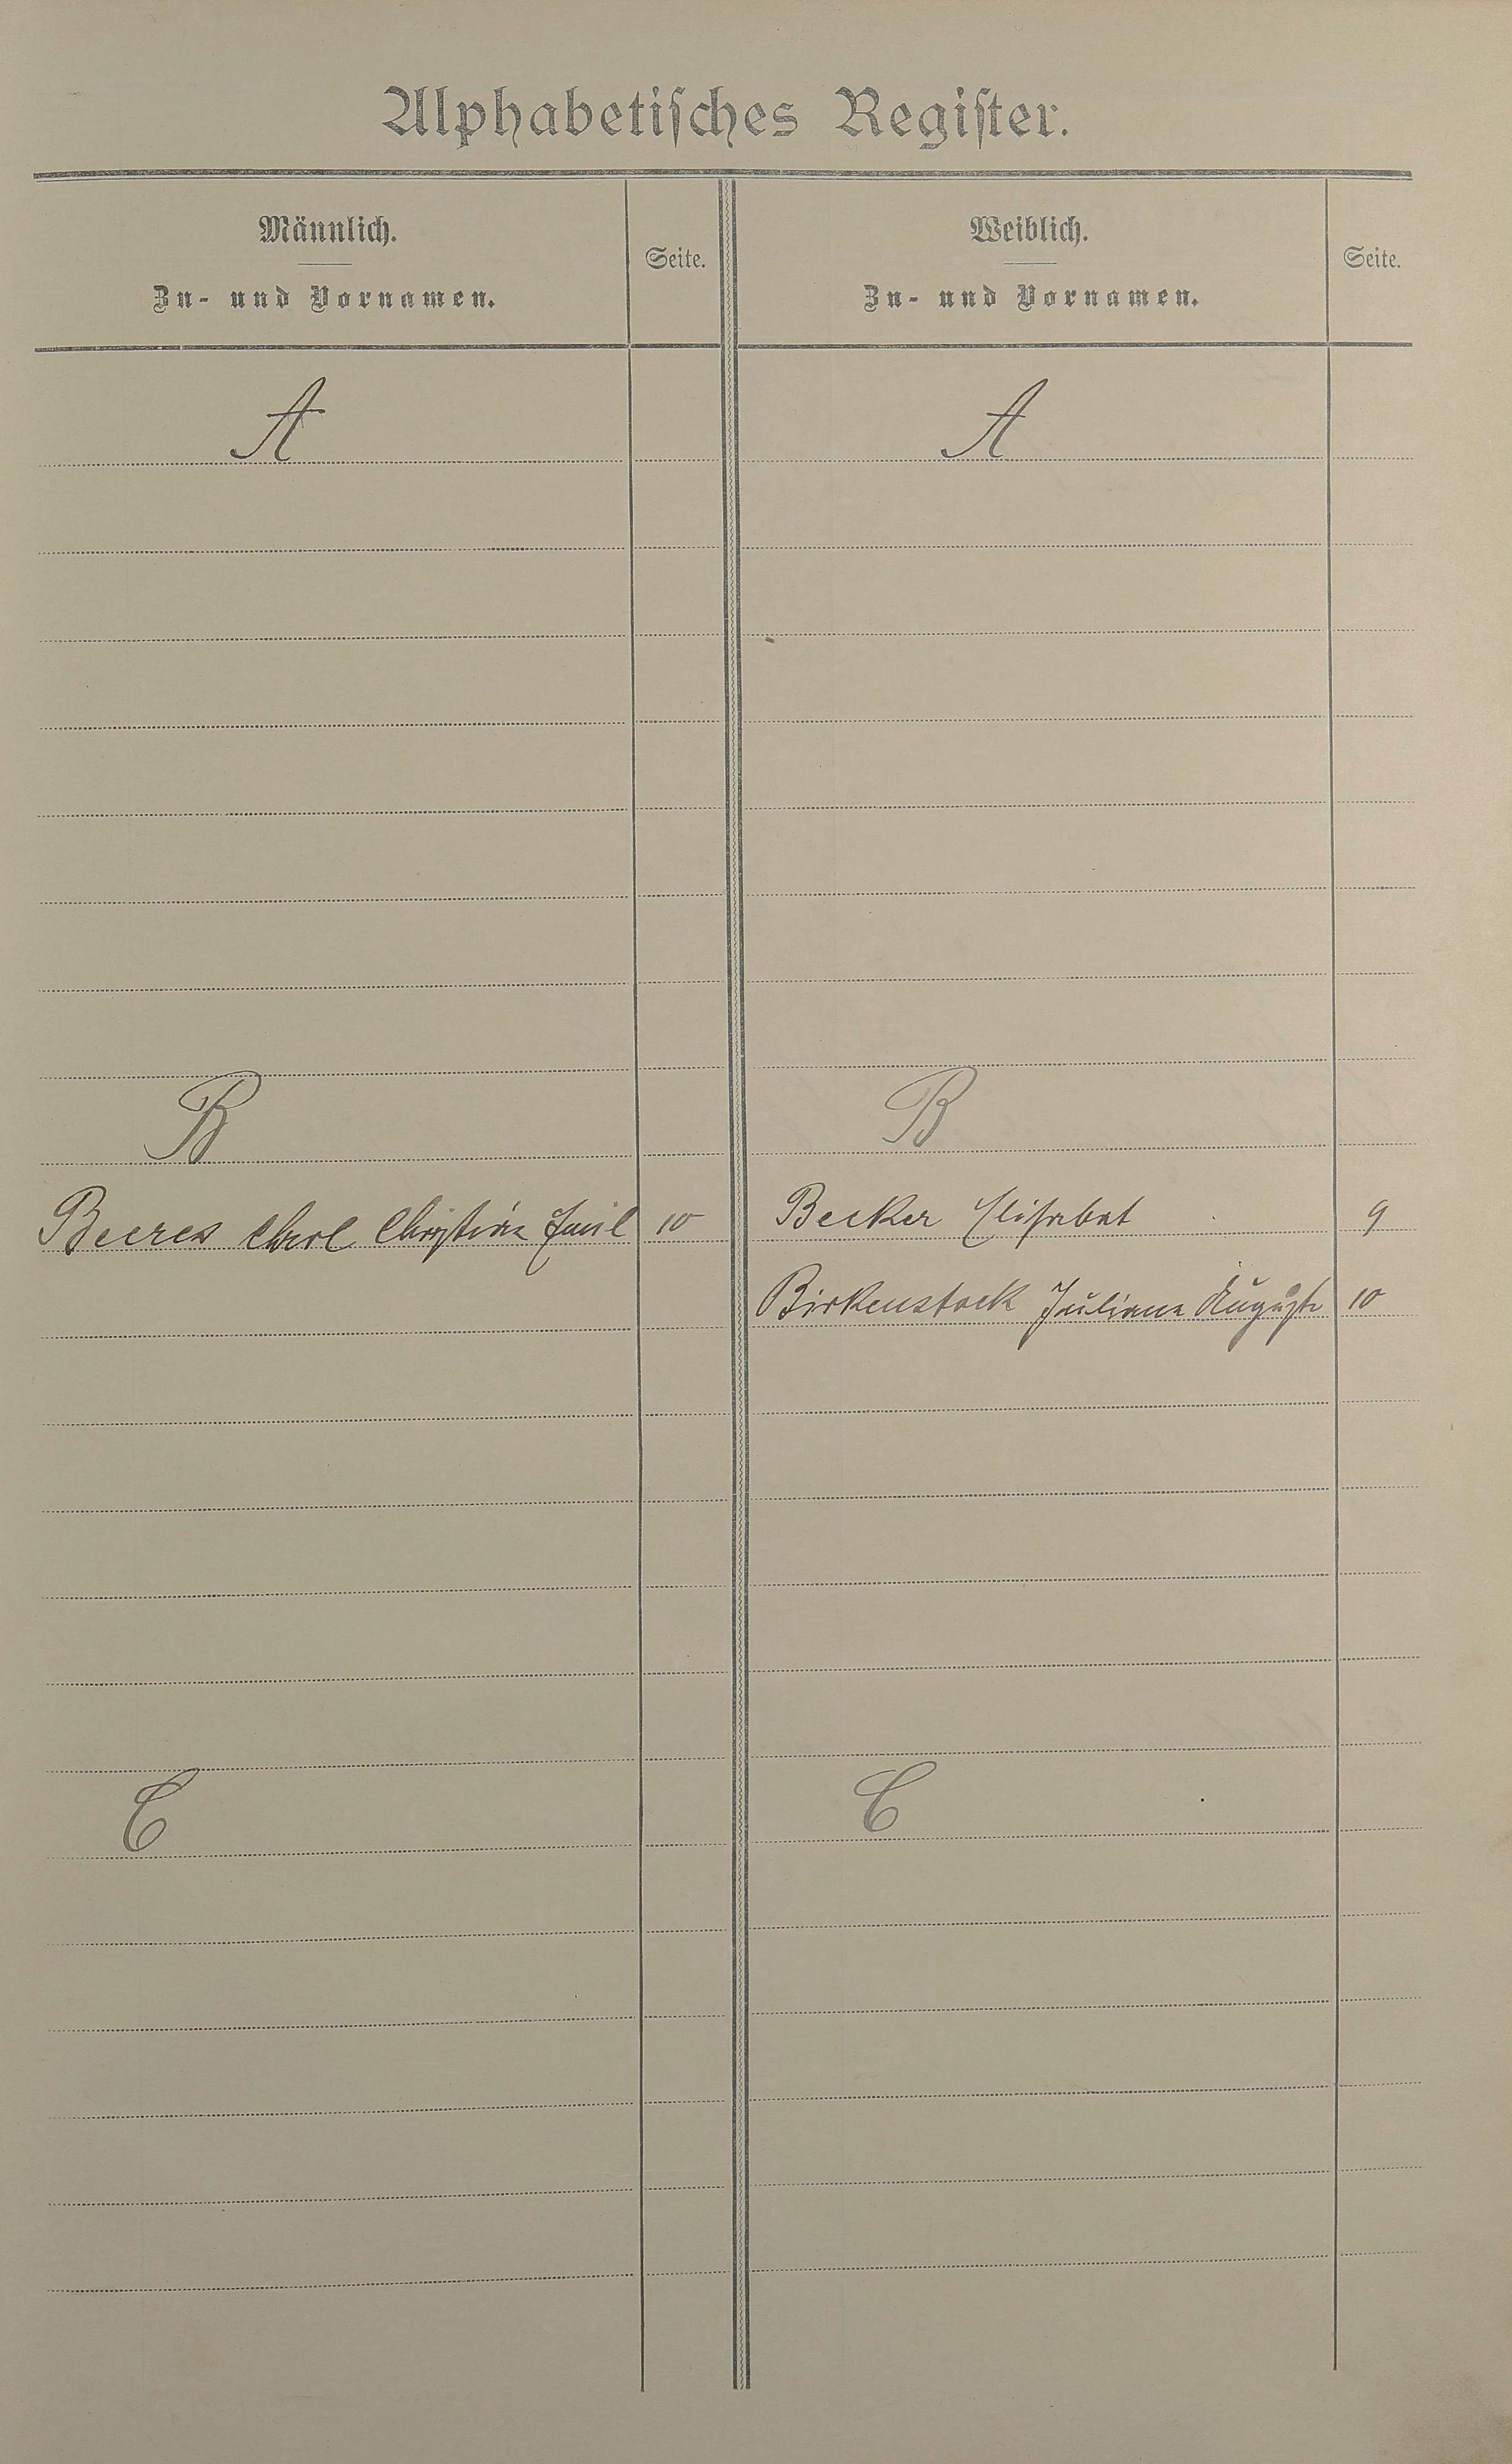 Alphabetisches Register.
Männlich.
Zu- und Vornamen.
Seite.
Weiblich.
Zu- und Vornamen.
Seite.
A
A
B
B
Beeres Christian Emil 10
Becker Elisabet 9
Birkenstock Juliana Auguste 10
C
C